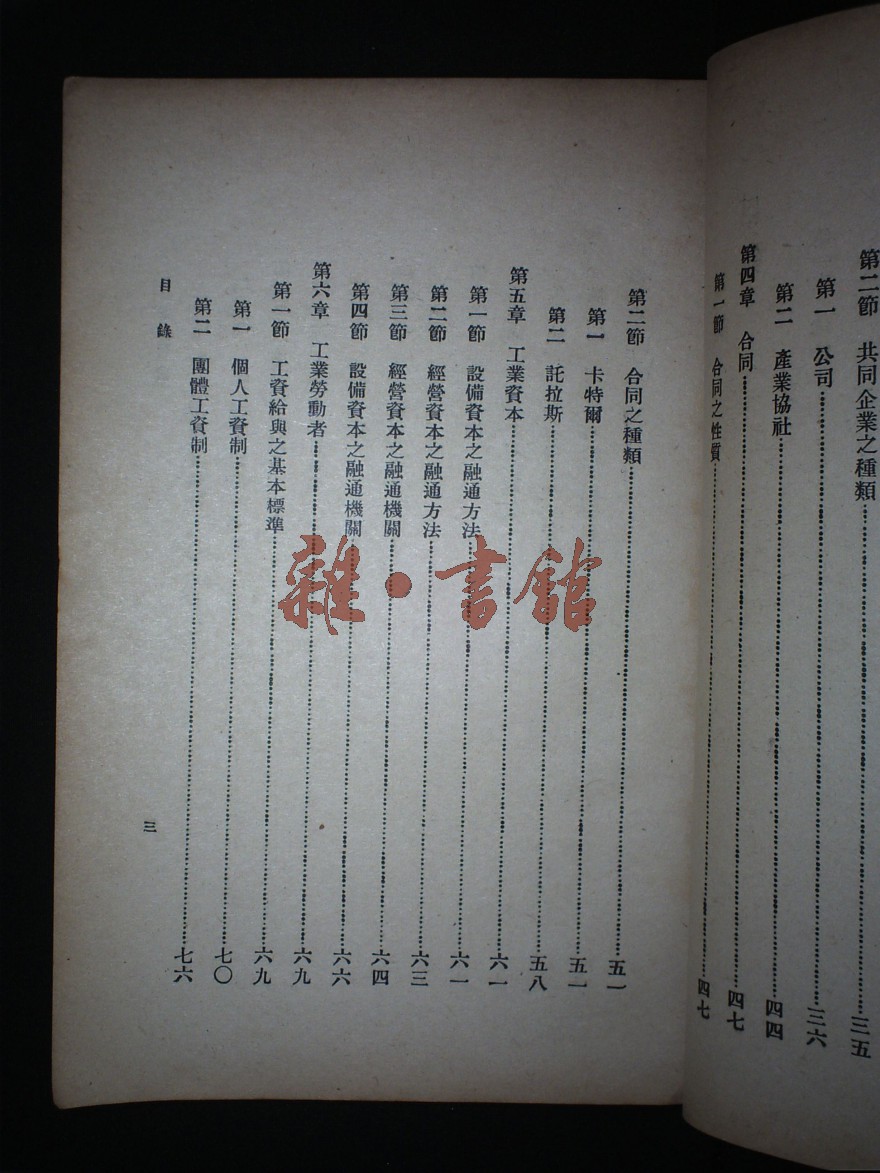 第二節　共同企業之種類……三五
第一　公司……三六
第二　產業協社……四四
第四章　合同……四七
第一節　合同之性質……四七
第二節　合同之種類……五一
第一　卡特爾……五一
第二　託拉斯……五八
第五章　工業資本……六一
第一節　設備資本之融通方法……六一
第二節　經營資本之融通方法……六三
第三節　經營資本之融通機關……六四
第四節　設備資本之融通機關……六六
第六章　工業勞動者……六九
第一節　工資給與之基本標準……六九
第一　個人工資制……七〇
第二　團體工資制……七六
目錄
三
雜·書館